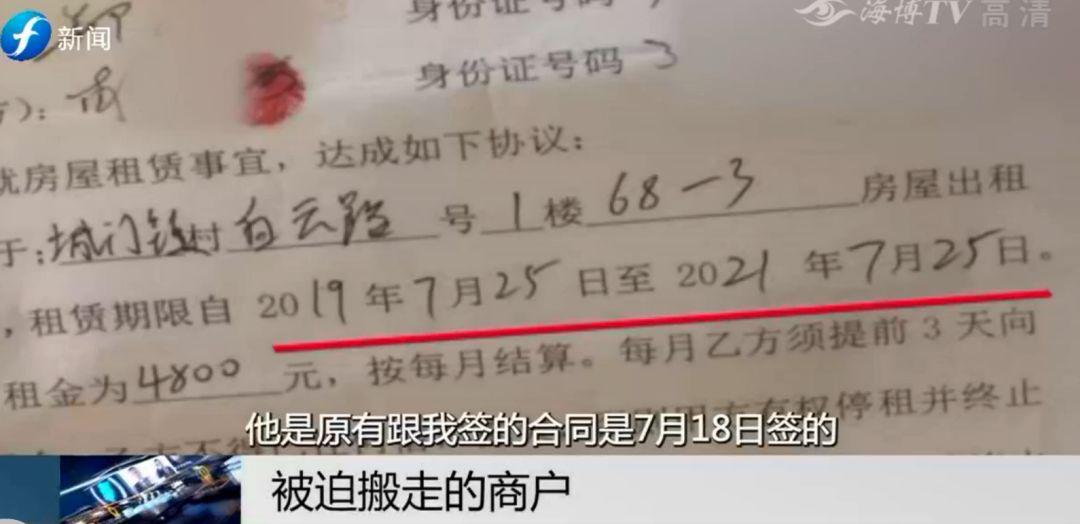 新闻
海博TV 高清
身份证号码
身份证号码 3
房屋租赁事宜，达成如下协议：
于：城门镇村白云路 号 1 楼 68-3 房屋出租
，租赁期限自 2019 年 7 月 25 日至 2021 年 7 月 25 日。
租金为 4800 元，按每月结算。每月乙方须提前 3 天向
有权停租并终止
他是原有跟我签的合同是7月18日签的
被迫搬走的商户